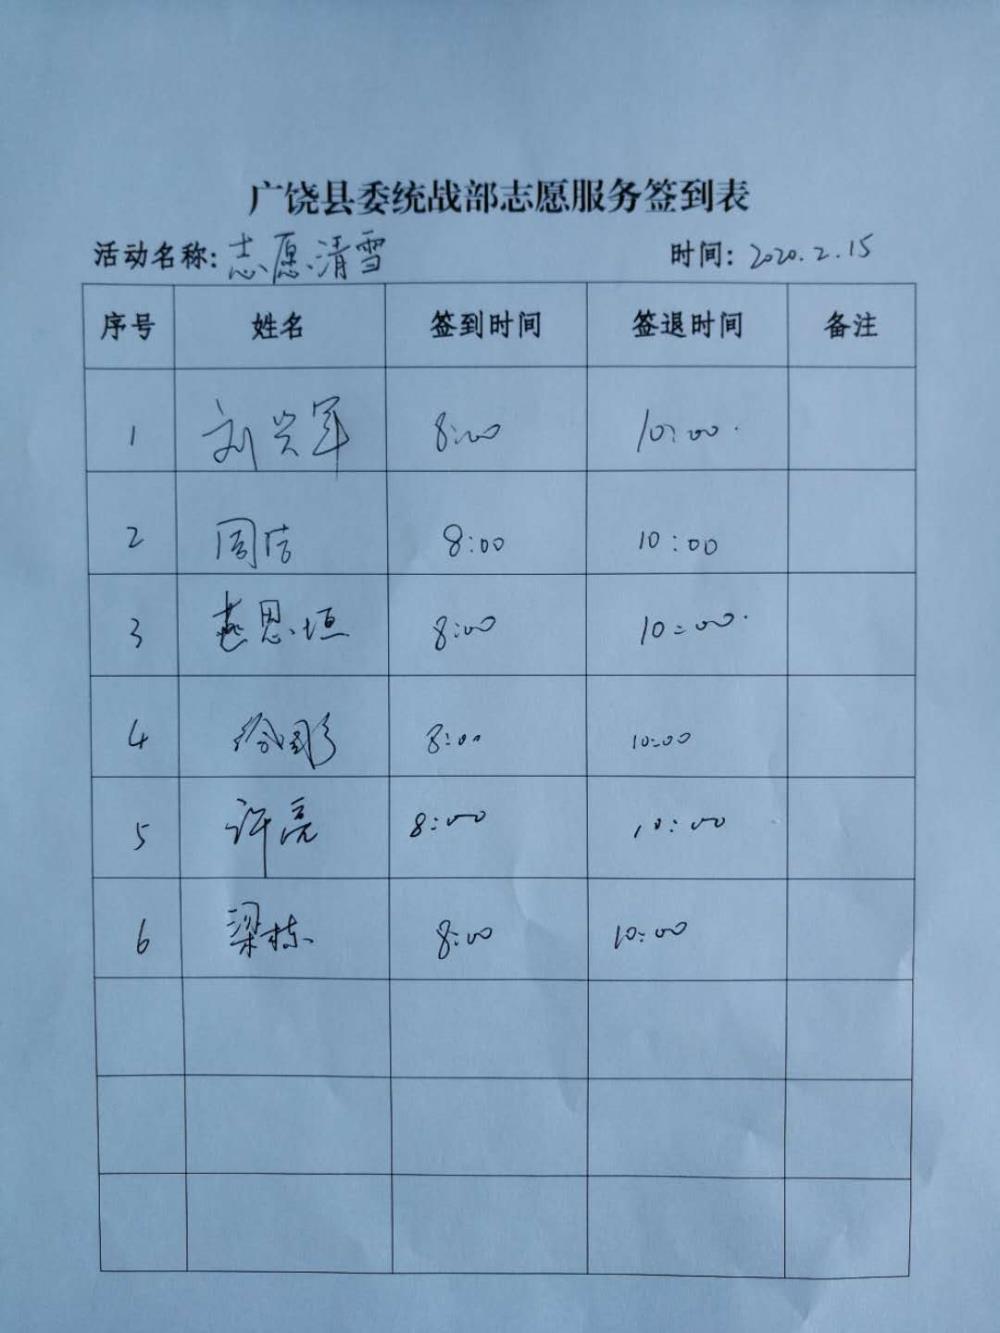 广饶县委统战部志愿服务签到表
活动名称: 志愿清雪 时间: 2020.2.15
序号 姓名 签到时间 签退时间 备注
1 刘兴军 8:00 10:00
2 周洁 8:00 10:00
3 燕恩垣 8:00 10:00
4 徐彪 8:00 10:00
5 许亮 8:00 10:00
6 梁栋 8:00 10:00